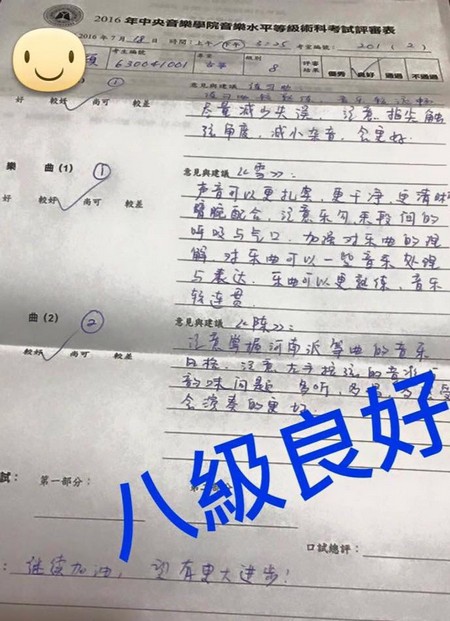 2016 年中央音樂學院音樂水平等級術科考試評審表
2016 年 7 月 18 日 時間:上午 下午 3:25 考室編號: 201 (2)
考生編號 630041001 古筝 級別 8 評審結果 優秀 良好 通過 不通過
①
意見與建議
好 較好 尚可 較差
尽量减少失误, 注意指尖触
弦角度, 减小杂音, 会更好.
樂 曲 (1) ①
意見與建議 《雪》:
好 較好 尚可 較差
声音可以更扎实, 更干净, 更清晰
臂腕配合, 注意乐句乐段间的
呼吸与气口. 加强对乐曲的理
解, 对乐曲可以一些音乐处理
与表达. 乐曲可以更熟练, 音乐
较连贯.
曲 (2) ②
意見與建議 《陈》:
較好 尚可 較差
注意掌握河南派筝曲的音乐
风格. 注意左手按弦的音准
韵味问题, 多听, 多
会演奏的更好.
八級良好
試: 第一部分:
口試總評:
: 继续加油, 更大进步!